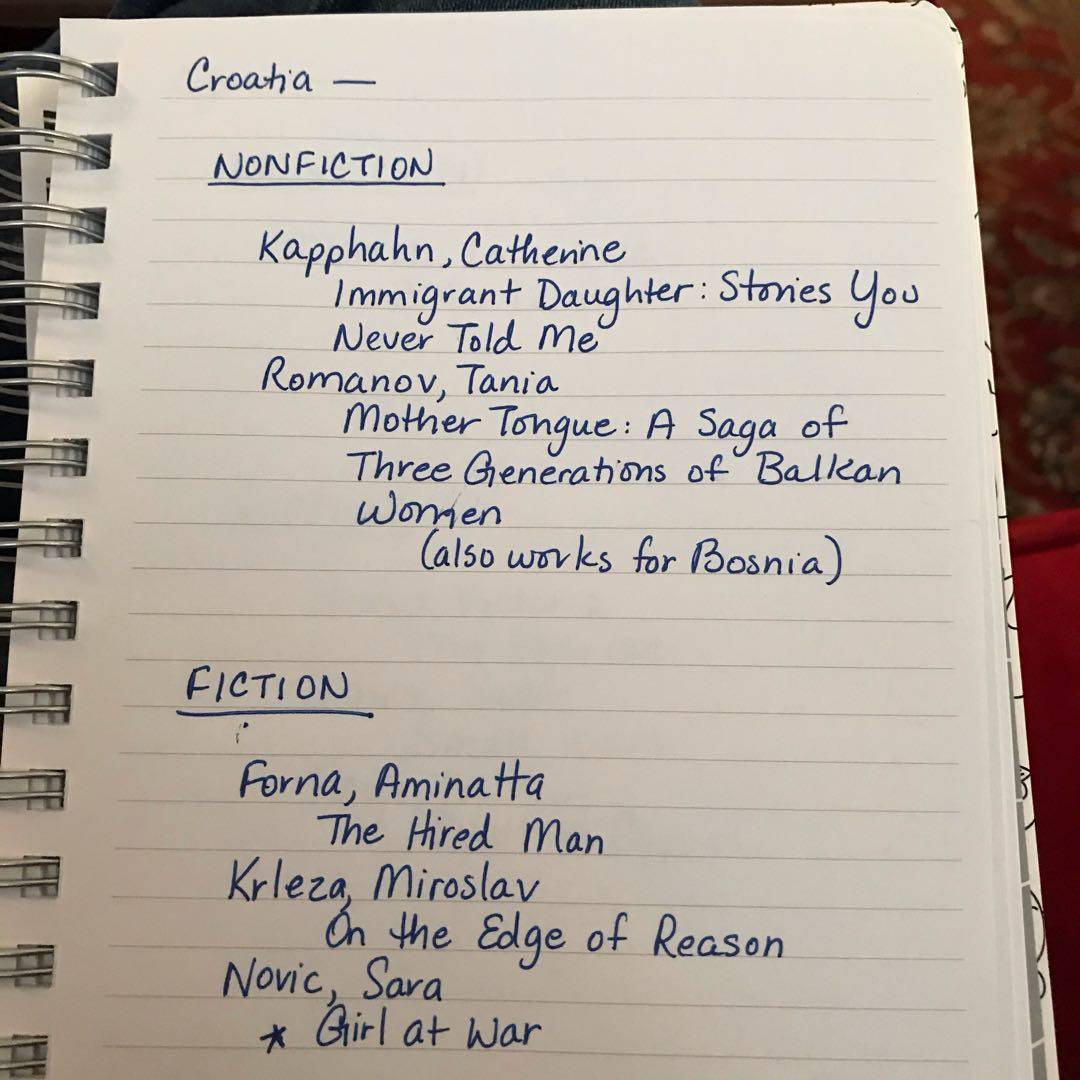 Croatia —
NONFICTION
Kapphahn, Catherine
Immigrant Daughter: Stories You
Never Told Me
Romanov, Tania
Mother Tongue: A Saga of
Three Generations of Balkan
Women
(also works for Bosnia)
FICTION
Forna, Aminatta
The Hired Man
Krleza, Miroslav
On the Edge of Reason
Novic, Sara
* Girl at War